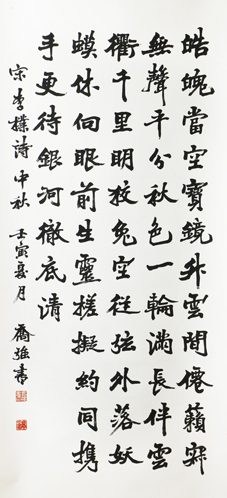 皓魄當空寶鏡升雲間僊籟寂
無聲平分秋色一輪滿長伴雲
衢千里明狡兔空從弦外落妖
蟆休向眼前生靈槎擬約同携
手更待銀河徹底清
宋李樸詩中秋 壬寅夏月 強書